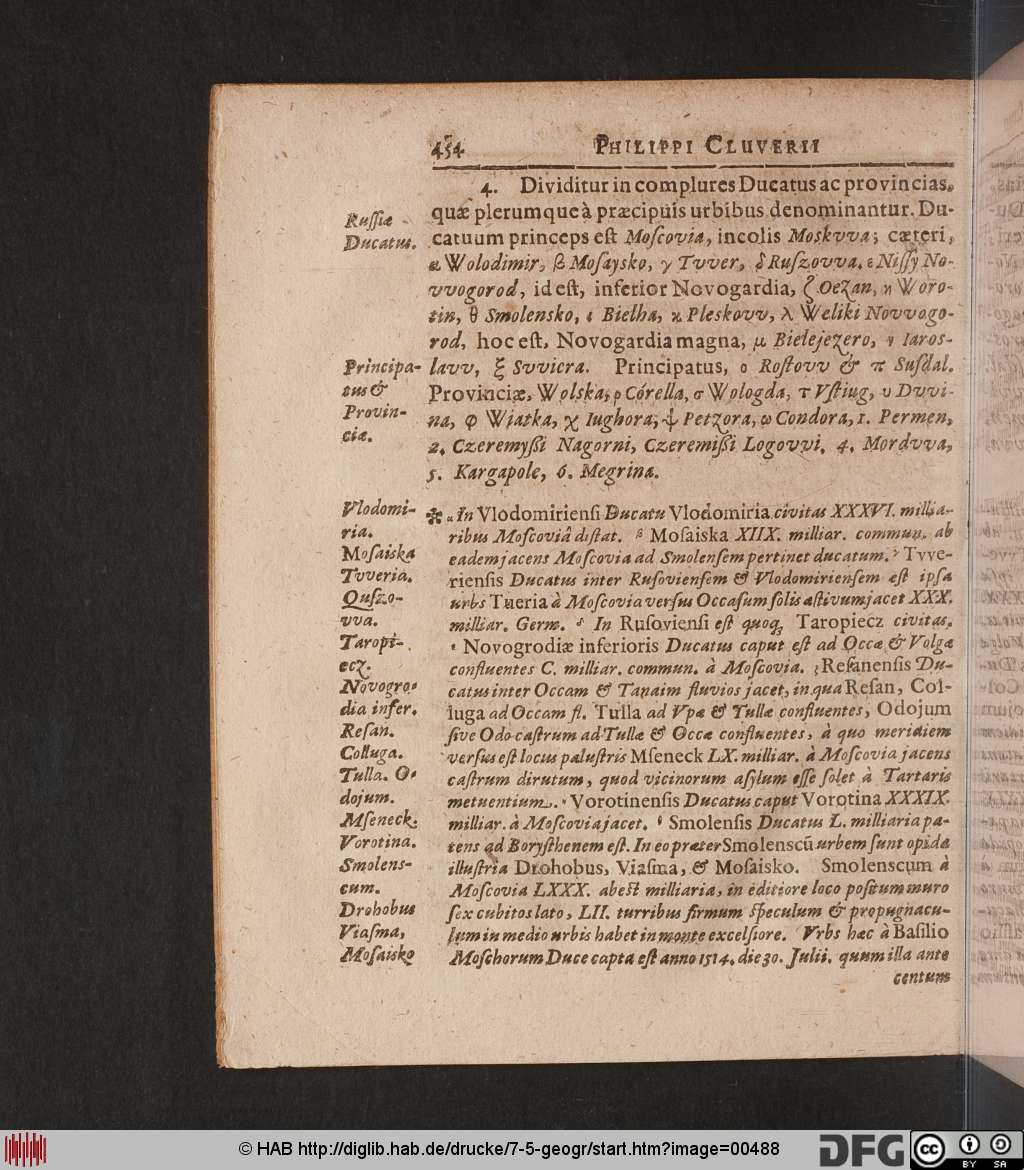 454 PHILIPPI CLUVERII
4. Dividitur in complures Ducatus ac provincias,
quæ plerumque à præcipuis urbibus denominantur. Du-
Ruſſiæ
Ducatus.
catuum princeps eſt Moſcovia, incolis Moskvva; cæteri,
α Wolodimir, β Moſaysko, γ Tvver, δ Ruſzovva, ε Niſſy No-
vvogorod, id eſt, inferior Novogardia, ζ Oezan, η Woro-
tin, θ Smolensko, ι Bielha, κ Pleskovv, λ Weliki Novvogo-
rod, hoc eſt, Novogardia magna, μ Bielejezero, ν Iaros-
Principa-
tus &
Provin-
ciæ.
lavv, ξ Svvicra. Principatus, ο Roſtovv & π Suſdal.
Provinciæ, Wolska, ρ Córella, σ Wologda, τ Vſtiug, υ Dvvi-
na, φ Wiatka, χ Iughora, ψ Petzora, ω Condora, 1. Permen,
2. Czeremyßi Nagorni, Czeremißi Logovvi, 4. Mordvva,
5. Kargapole, 6. Megrina.
Vlodomi-
ria.
Moſaiska
Tvveria.
Quſzo-
vva.
Taropi-
ecz.
Novogro-
dia infer.
Reſan.
Colluga.
Tulla. O-
dojum.
Mſeneck.
Vorotina.
Smolens-
cum.
Drohobus
Viaſma,
Moſaisko
✻ α In Vlodomirienſi Ducatu Vlodomiria civitas XXXVI. millia-
ribus Moſcoviâ diſtat. β Moſaiska XIIX. milliar. commun. ab
eadem jacens Moſcovia ad Smolenſem pertinet ducatum. γ Tvve-
rienſis Ducatus inter Ruſovienſem & Vlodomirienſem eſt ipſa
urbs Tueria à Moſcovia verſus Occaſum ſolis æſtivum jacet XXX.
milliar. Germ. δ In Ruſovienſi eſt quoq; Taropiecz civitas.
ε Novogrodiæ inferioris Ducatus caput eſt ad Occæ & Volgæ
confluentes C. milliar. commun. à Moſcovia. ζ Reſanenſis Du-
catus inter Occam & Tanaim fluvios jacet, in qua Reſan, Col-
luga ad Occam fl. Tulla ad Vpæ & Tullæ confluentes, Odojum
ſive Odo caſtrum ad Tullæ & Occæ confluentes, à quo meridiem
verſus eſt locus paluſtris Mſeneck LX. milliar. à Moſcovia jacens
caſtrum dirutum, quod vicinorum aſylum eſſe ſolet à Tartaris
metuentium. η Vorotinenſis Ducatus caput Vorotina XXXIX.
milliar. à Moſcovia jacet. θ Smolenſis Ducatus L. milliaria pa-
tens ad Boryſthenem eſt. In eo præter Smolenscū urbem ſunt opida
illuſtria Drohobus, Viaſma, & Moſaisko. Smolenscum à
Moſcovia LXXX. abeſt milliaria, in editiore loco poſitum muro
ſex cubitos lato, LII. turribus firmum ſpeculum & propugnacu-
lum in medio urbis habet in monte excelſiore. Vrbs hæc à Baſilio
Moſchorum Duce capta eſt anno 1514. die 30. Julii. quum illa ante
centum
© HAB http://diglib.hab.de/drucke/7-5-geogr/start.htm?image=00488
DFG
cc BY SA